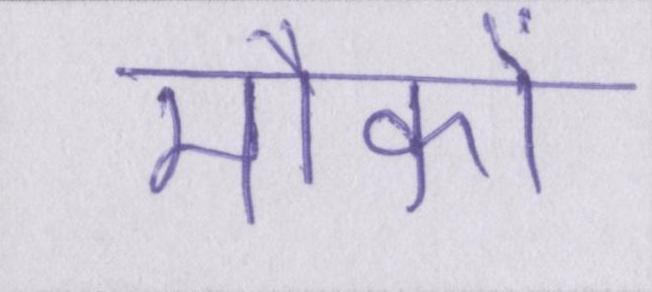 मौकों